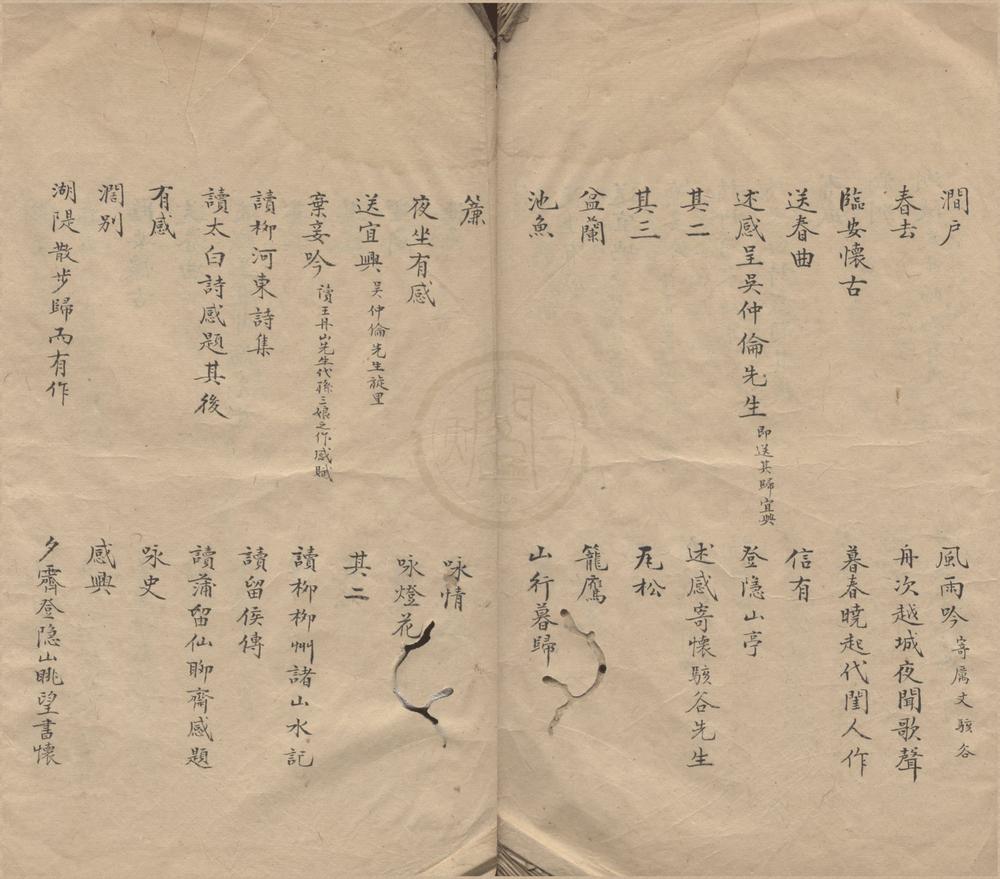 澗户
春去
臨安懷古
送春曲
述感呈吳仲倫先生 即送其歸宜興
其二
其三
盆蘭
池魚
風雨吟 寄厲丈駭谷
舟次越城夜聞歌聲
暮春曉起代閨人作
信有
登隐山亭
述感寄懷駭谷先生
瓦松
籠鷹
山行暮歸
簾
夜坐有感
送宜興吳仲倫先生旋里
棄妾吟 讀王丹山先生代孫三娘之作感賦
讀柳河東詩集
讀太白詩感題其後
有感
濶别
湖隄散步歸而有作
咏情
咏燈花
其二
讀柳柳州諸山水記
讀留侯傳
讀蒲留仙聊齋感題
咏史
感興
夕霽登隐山眺望書懷